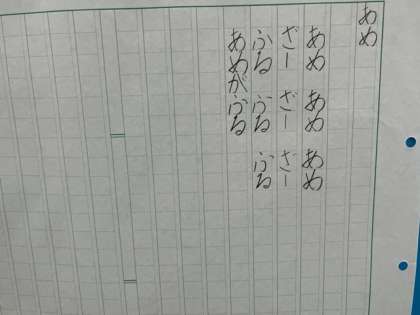 あめ
あめ　あめ　あめ
ざー　ざー　ざー
ふる　ふる　ふる
あめがふる